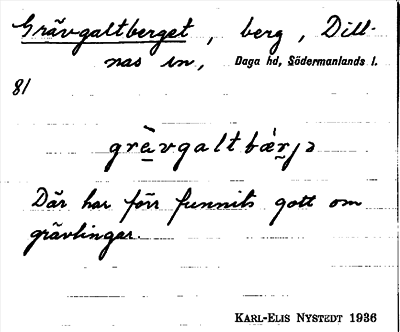 Grävgaltberget, berg, Dill-
näs sn, Daga hd, Södermanlands l.
81
grä̀vgaltbæ̀rjə
Där har förr funnits gott om
grävlingar.
KARL-ELIS NYSTEDT 1936